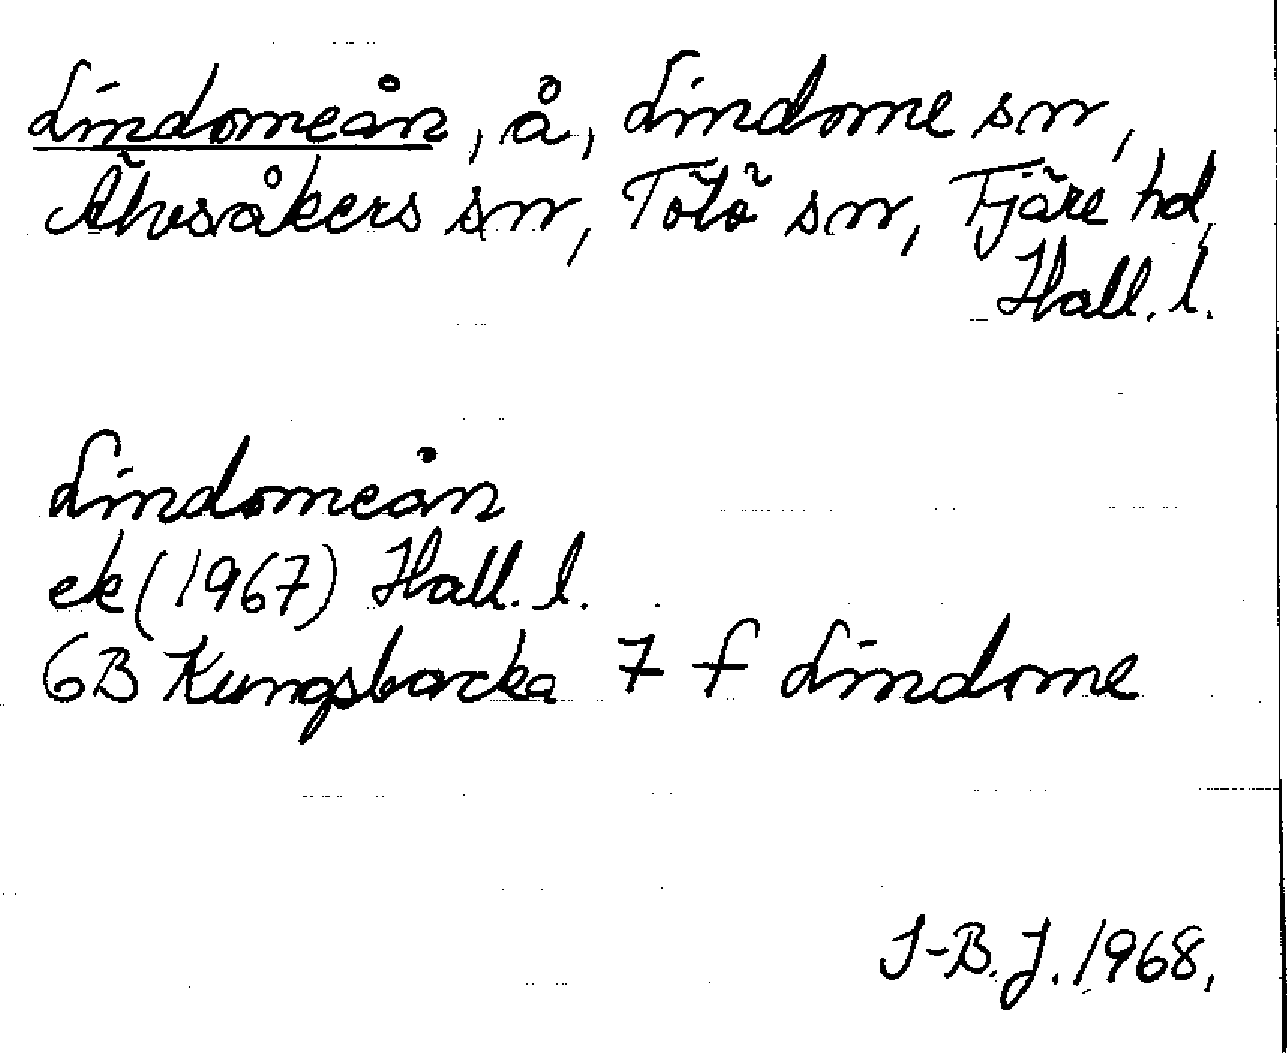 Lindomeån, å, Lindome sn,
Älvsåkers sn, Tölö sn, Fjäre hd,
Hall. l.
Lindomeån
ek (1967) Hall. l.
6B Kungsbacka 7 f Lindome
I-B. J. 1968.